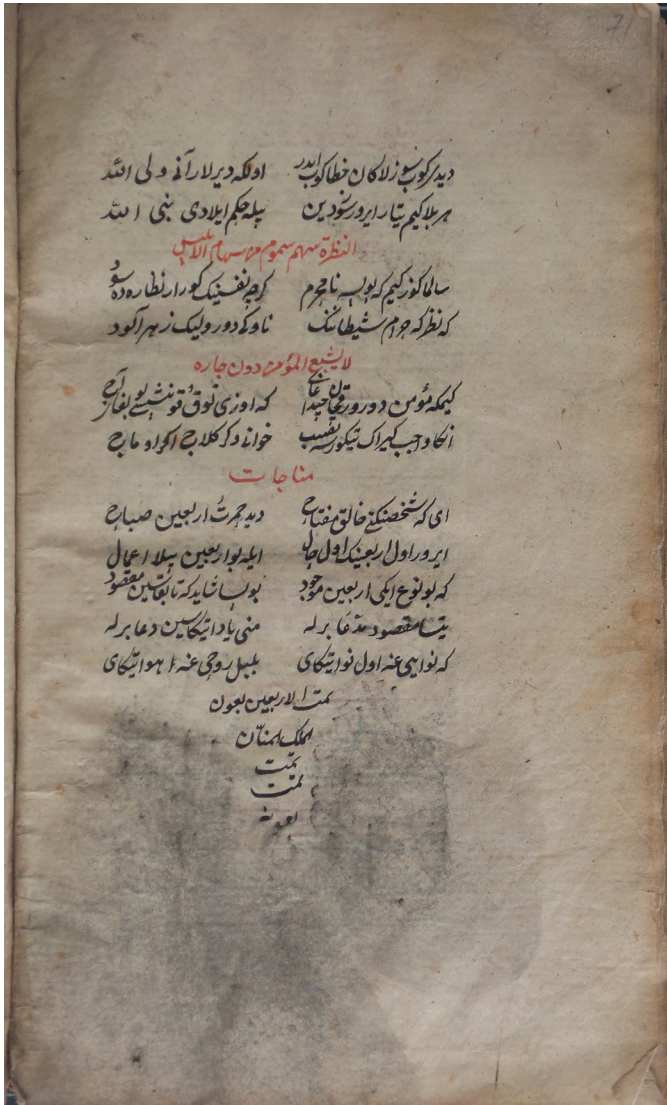 71
دیدیلر کوب سوزلاکان خطا کوب ایدر اولکه دیرلار آنی ولی الله
هر بلا کیم یتار ایرور سوزدین بیله حکم ایلادی نبی الله
النظرة سهم مسموم من سهام الابلیس
سالما کوز کیم که بولسه نامحرم کرچه نفسینک کورار نظاره ده سود
که نظر که حرام شیطاننک ناوکی دور ولیک زهر آلود
لا یشبع المؤمن دون جاره
کیمکه مؤمن دورور که اوزی توق قونشیسی بولغای آج
انکا واجب کیراک تیکورسه نصیب خوانیدا کر کلاج اکر اوماج
مناجات
ای که شخصنکنی خالق مفتاح دیدی خمرت اربعین صباح
ایرور اول اربعینک اول حال ایله بو اربعین بیلا اعمال
که بو نوع ایکی اربعین موجود بولسا شاید که تابقاسین مقصود
یتسا مقصود مدعا بیرله منی یاد ایتکاسین دعا بیرله
که نواهی عنه اول نوا ایتکای بلبل روحی عنه هوا ایتکای
تمت الاربعین بعون
الملک المنان
تمت
تمت
بعونه